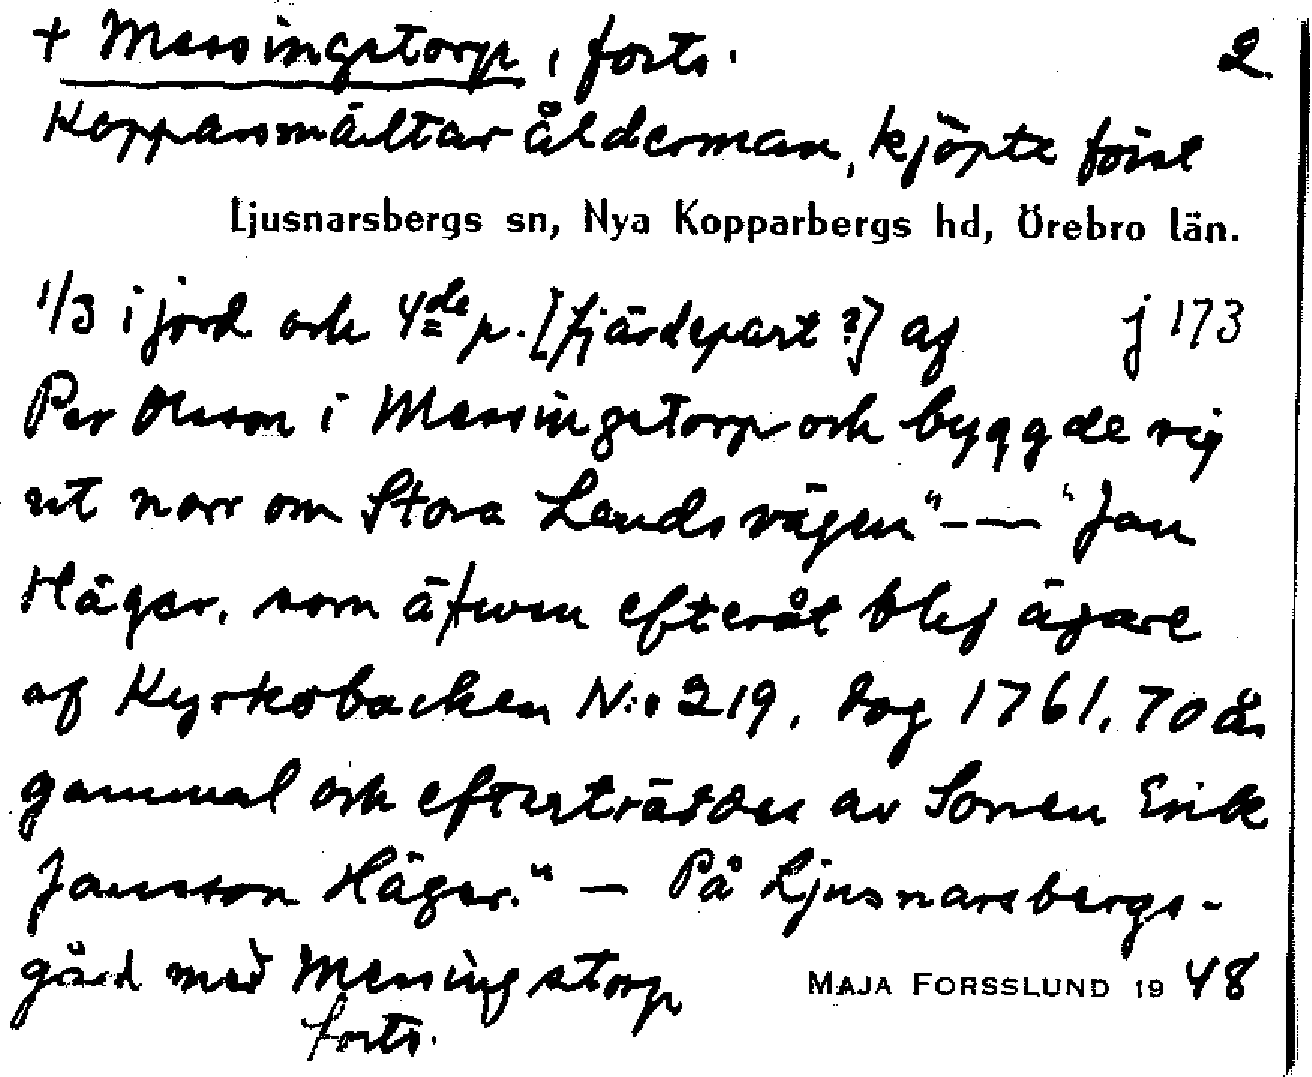 + Messingstorp, forts. 2
Kopparsmältar ålderman, kjöpte först
Ljusnarsbergs sn, Nya Kopparbergs hd, Örebro län.
1/3 i jord och 4de p. [fjärdepart?] af j 173
Per Olsson i Messingstorp och byggde sig
ut norr om Stora Landsvägen" - — "Jan
Häger, som äfwen efteråt blef ägare
af Kyrkobacken N:o 219, dog 1761, 70 år
gammal och efterträddes av Sonen Erik
Jansson Häger." — På Ljusnarsbergs-
gård med Messingstorp MAJA FORSSLUND 1948
forts.